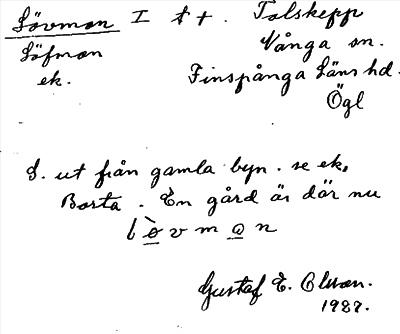 Lövmon I t +. Talskepp
Löfmon Vånga sn.
ek. Finspånga Läns hd.
Ögl
S. ut från gamla byn. se ek.
Borta. En gård är där nu
l ò v m o n
Gustaf E. Olsson.
1987.